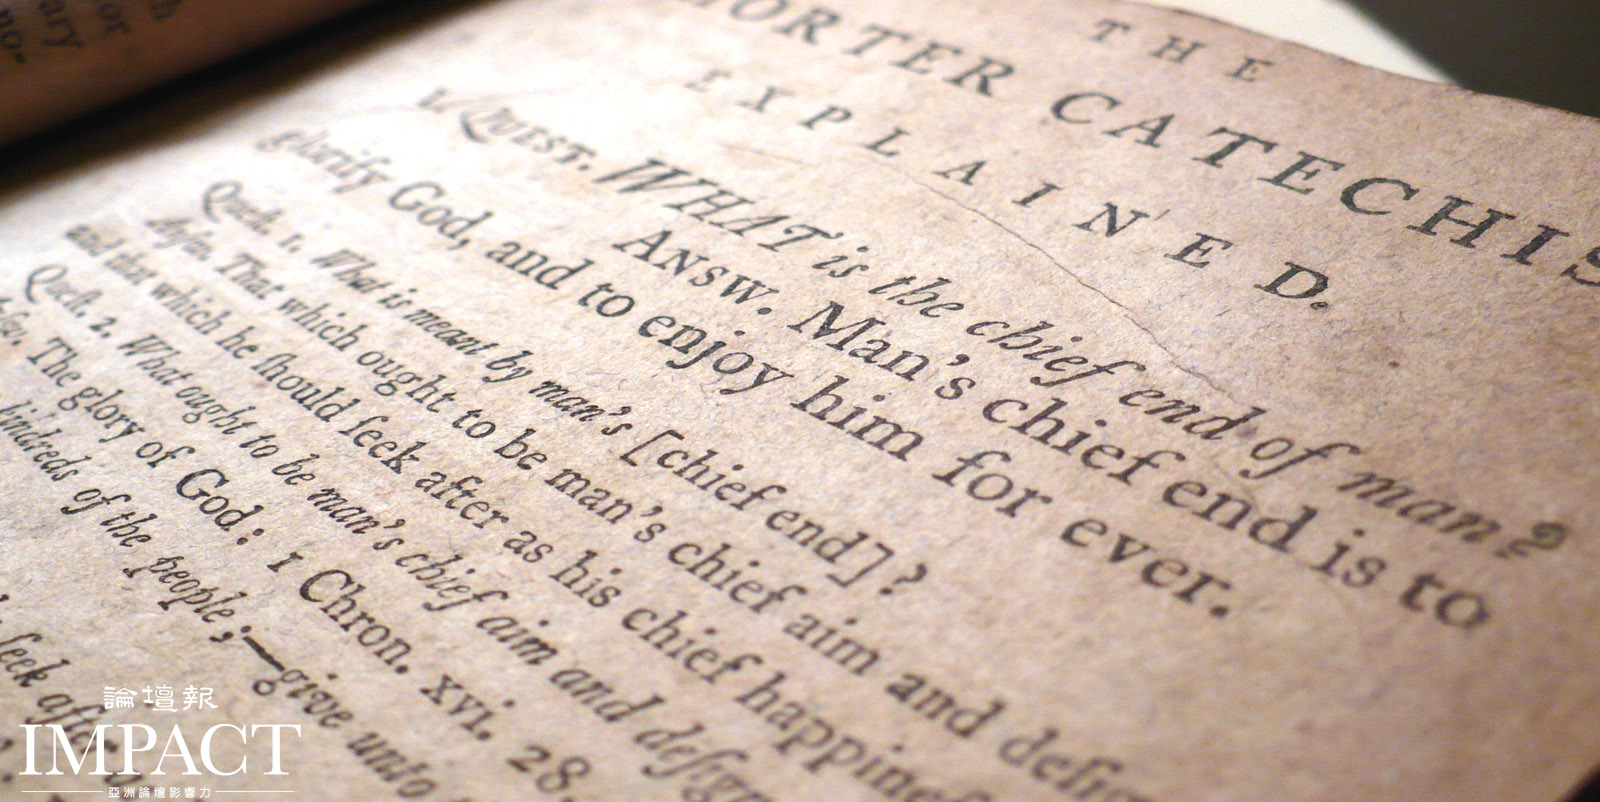 or
ary
no-
THE
ORTER CATECHIS
EXPLAINED.
QUEST. WHAT is the chief end of man?
ANSW. Man's chief end is to
glorify God, and to enjoy him for ever.
Queſt. 1. What is meant by man's [chief end]?
Anſw. That which ought to be man's chief aim and deſig
and that which he ſhould ſeek after as his chief happineſ
Queſt. 2. What ought to be man's chief aim and deſign
ſw. The glory of God: 1 Chron. xvi. 28,
kindreds of the people;—give unto
ſeek after
論壇報
IMPACT
亞洲論壇影響力